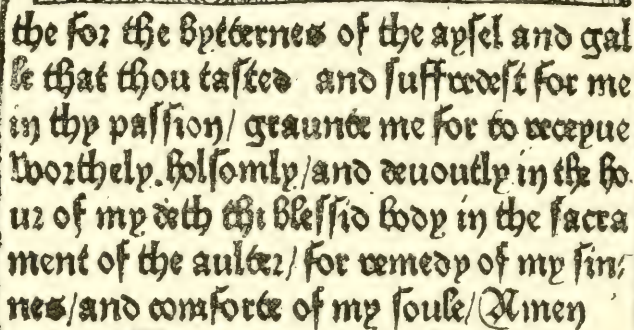 the for the bytternes of the aysel and gal
le that thou tasted and suffredest for me
in thy passion/ graunte me for to receyue
worthely. holsomly/and deuoutly in the ho
ur of my deth thi blessid body in the sacra
ment of the aulter/ for remedy of my sin⸗
nes/and comforte of my soule/ Amen